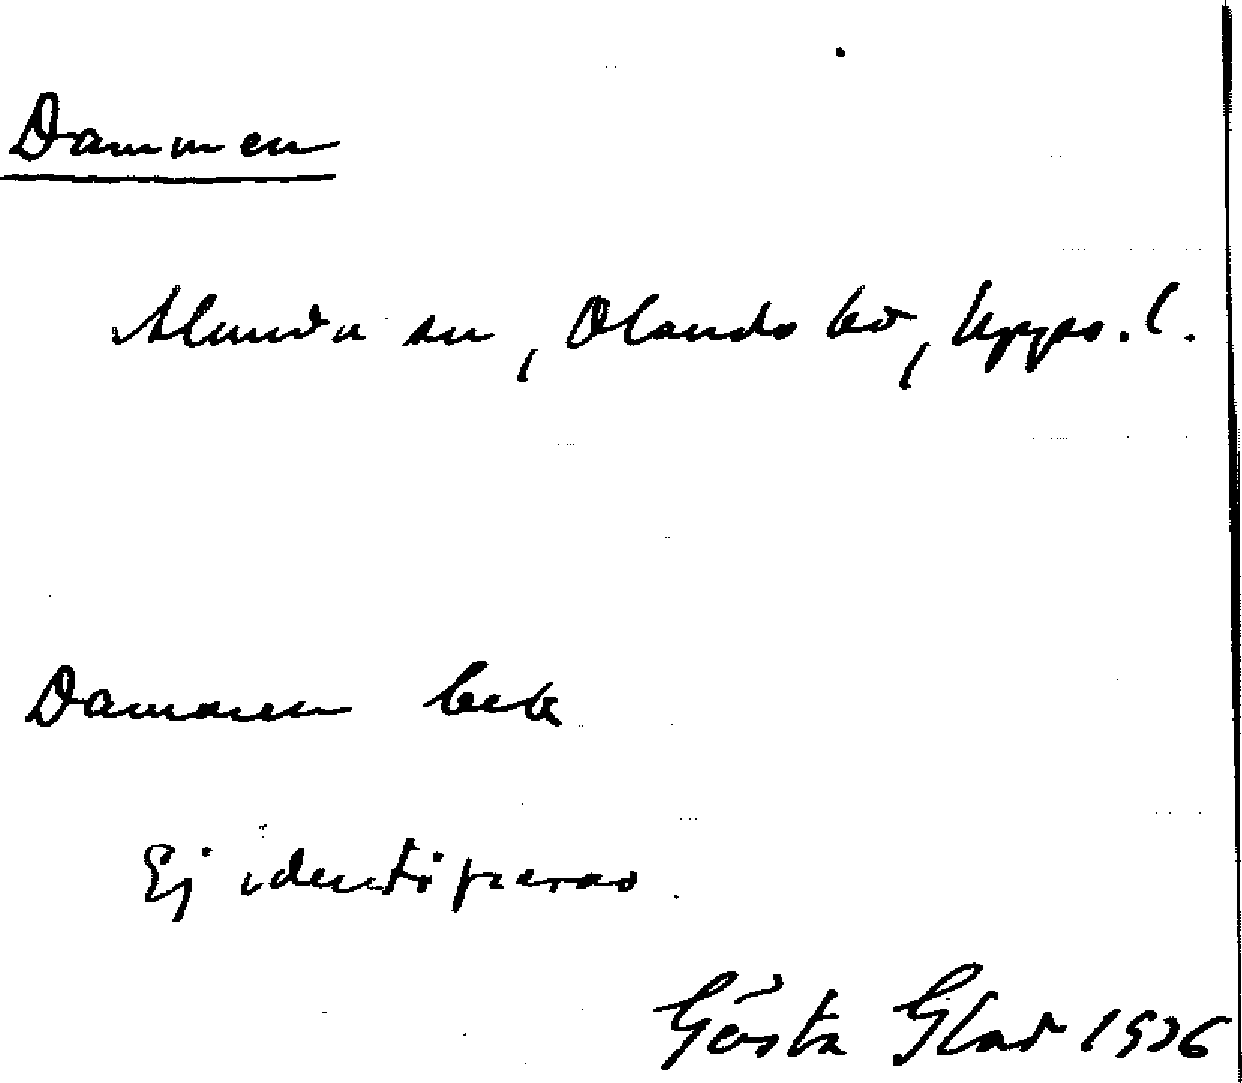 Dammen
Alunda sn, Olands hd, Upps. l.
Dammen
Ej identifieras
Gösta Glad 1936